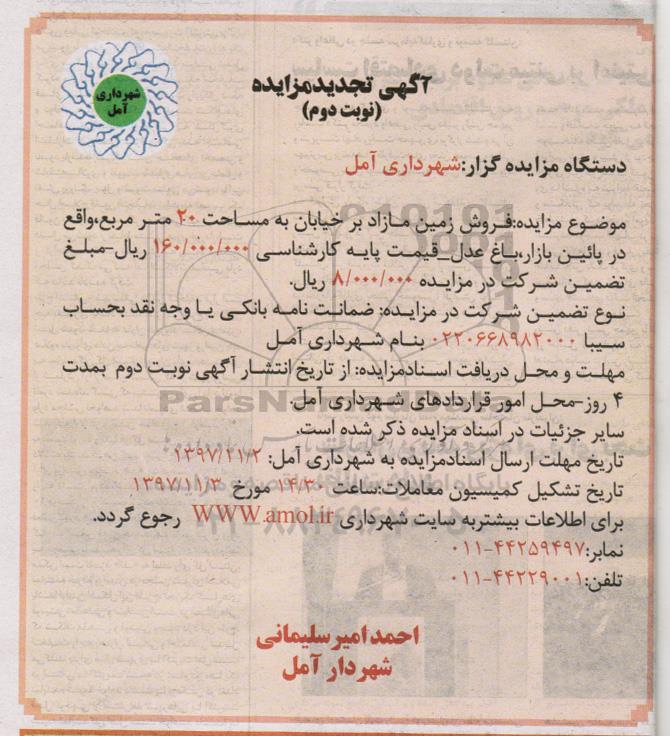 شهرداری
آمل
آگهی تجدیدمزایده
(نوبت دوم)
دستگاه مزایده گزار:شهرداری آمل
موضوع مزایده:فروش زمین مازاد بر خیابان به مساحت ۲۰ متر مربع،واقع
در پائین بازار،باغ عدل_قیمت پایه کارشناسی ۱۶۰/۰۰۰/۰۰۰ ریال-مبلغ
تضمین شرکت در مزایده ۸/۰۰۰/۰۰۰ ریال.
نوع تضمین شرکت در مزایده: ضمانت نامه بانکی یا وجه نقد بحساب
سیبا ۰۲۲۰۶۶۸۹۸۲۰۰۰ بنام شهرداری آمل
مهلت و محل دریافت اسنادمزایده: از تاریخ انتشار آگهی نوبت دوم بمدت
۴ روز-محل امور قراردادهای شهرداری آمل.
ParsNamadData
سایر جزئیات در اسناد مزایده ذکر شده است.
تاریخ مهلت ارسال اسنادمزایده به شهرداری آمل: ۱۳۹۷/۱۱/۲
تاریخ تشکیل کمیسیون معاملات:ساعت ۱۴/۳۰ مورخ ۱۳۹۷/۱۱/۳
برای اطلاعات بیشتربه سایت شهرداری WWW.amol.ir رجوع گردد.
نمابر:۴۴۲۵۹۴۹۷-۰۱۱
تلفن:۴۴۲۲۹۰۰۱-۰۱۱
احمدامیرسلیمانی
شهردار آمل